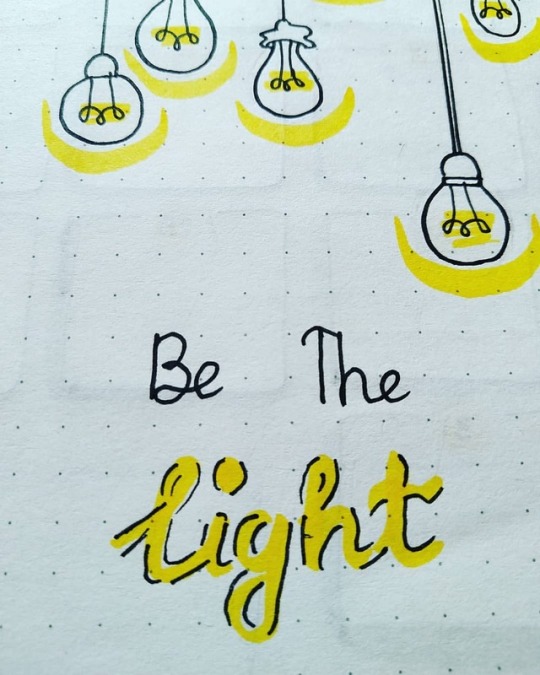 Be The
light